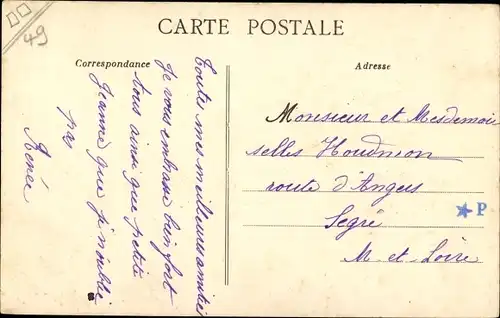 49
CARTE POSTALE
Correspondance
Adresse
Toutes mes meilleures amitiés
Je vous embrasse bien fort
tous ainsi que petite
Jeanne que j'noublie
pas
Renée
Monsieur et Mesdemoi
selles Houdmon
route d'Angers
Segré
M. et. Loire
P